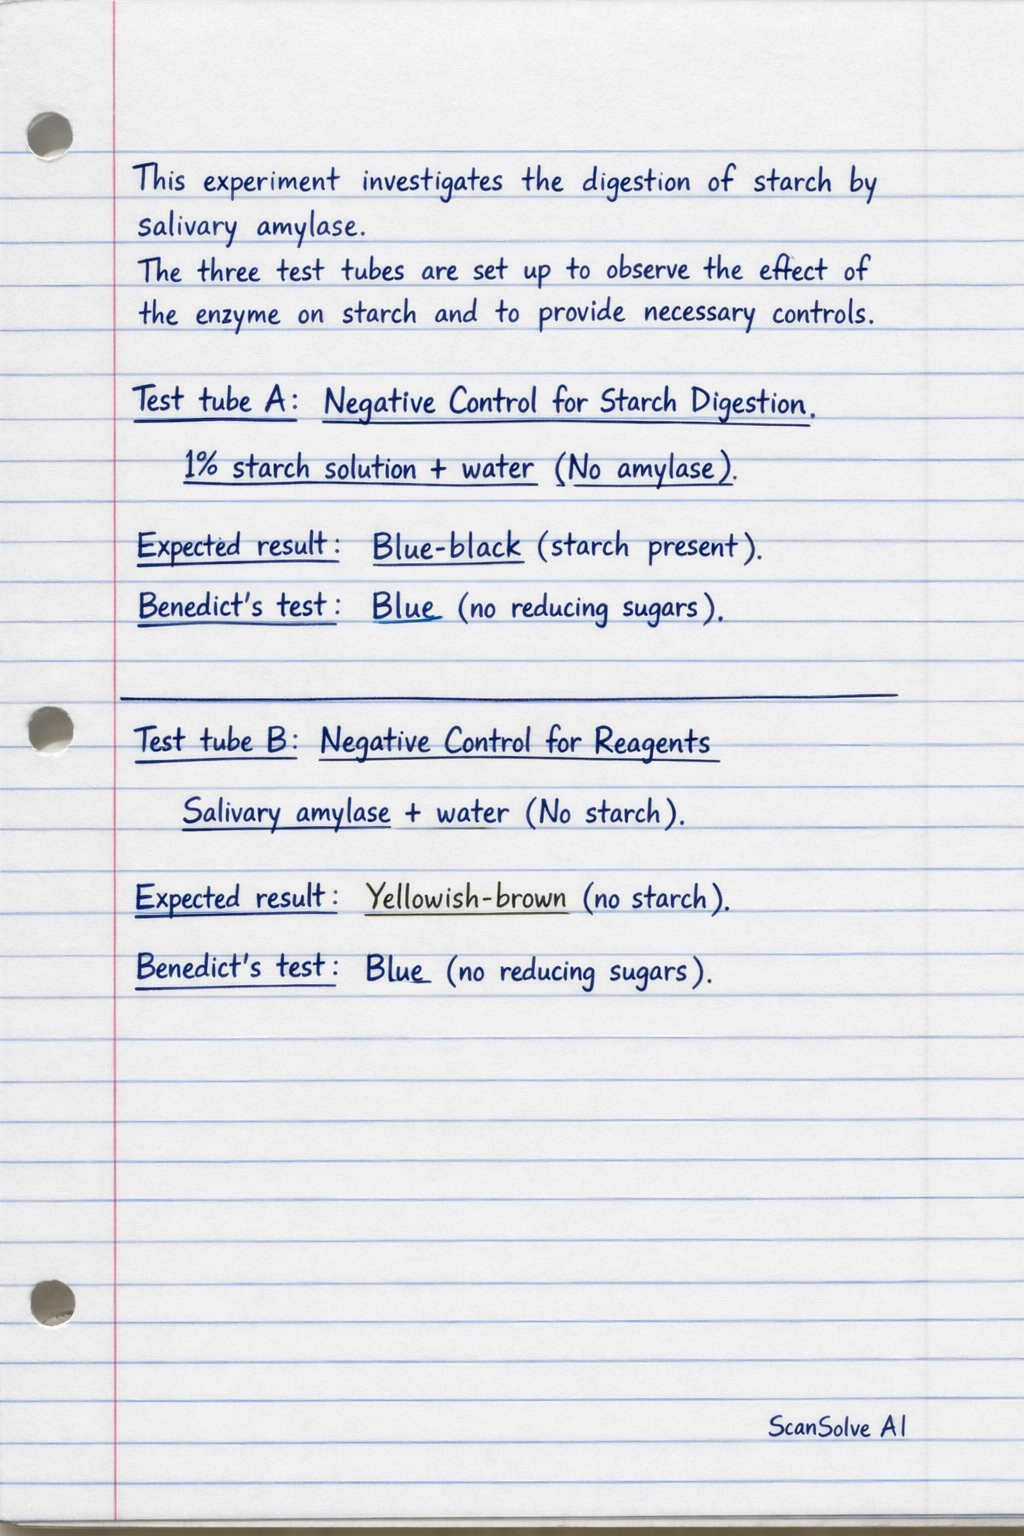 This experiment investigates the digestion of starch by
salivary amylase.
The three test tubes are set up to observe the effect of
the enzyme on starch and to provide necessary controls.
Test tube A: Negative Control for Starch Digestion.
1% starch solution + water (No amylase).
Expected result: Blue-black (starch present).
Benedict's test: Blue (no reducing sugars).
Test tube B: Negative Control for Reagents
Salivary amylase + water (No starch).
Expected result: Yellowish-brown (no starch).
Benedict's test: Blue (no reducing sugars).
ScanSolve AI